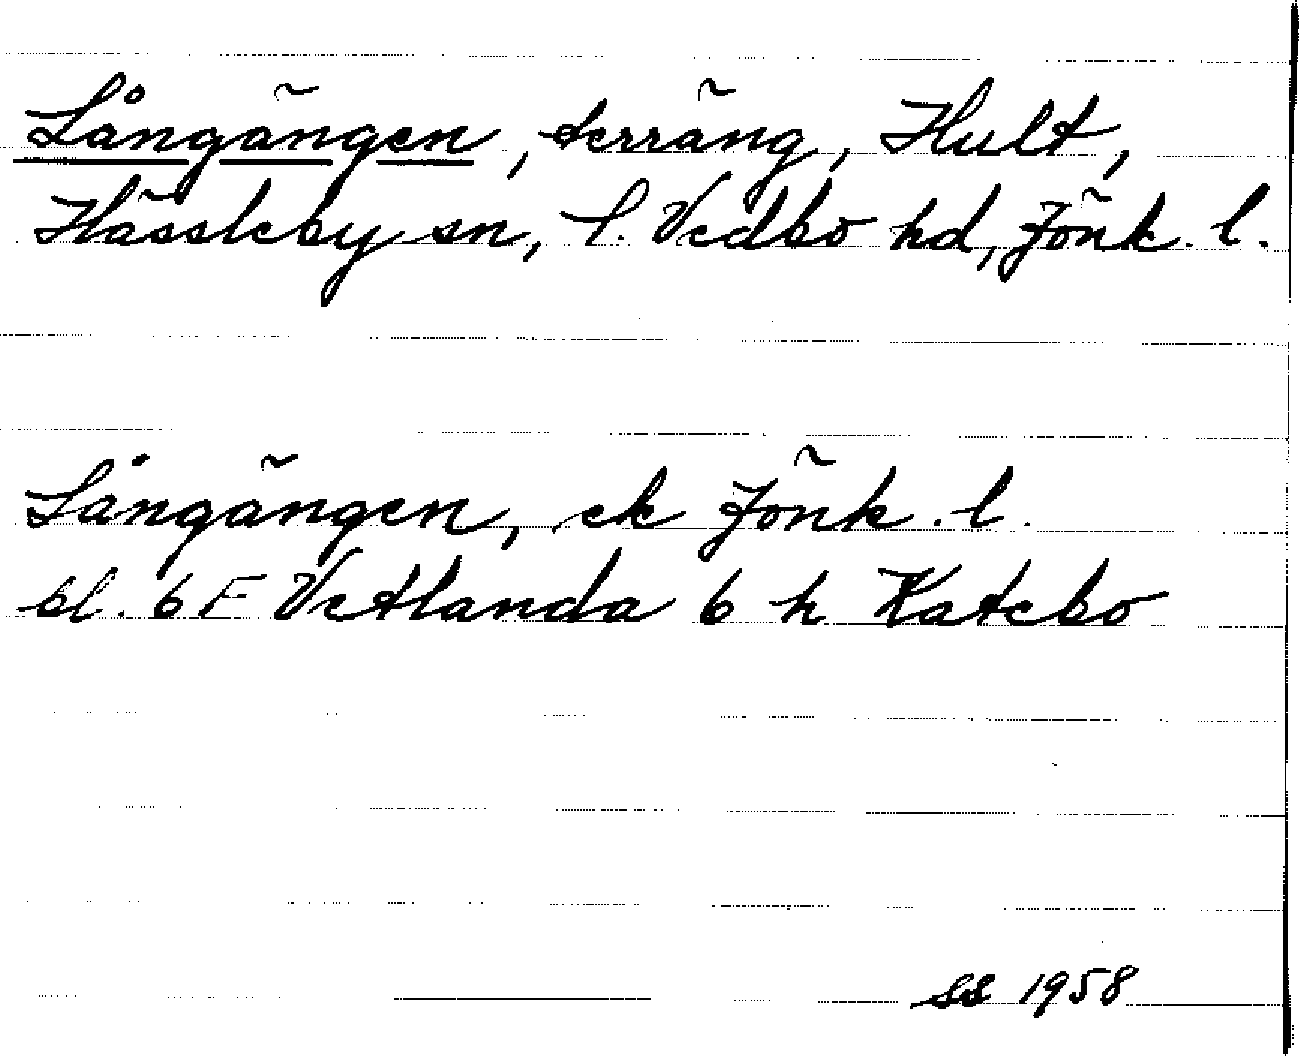 Långängen, terräng, Hult,
Hässleby sn, S. Vedbo hd, Jönk. l.
Långängen, ek Jönk. l.
bl. 6 F Vetlanda 6 h Katebo
ss 1958